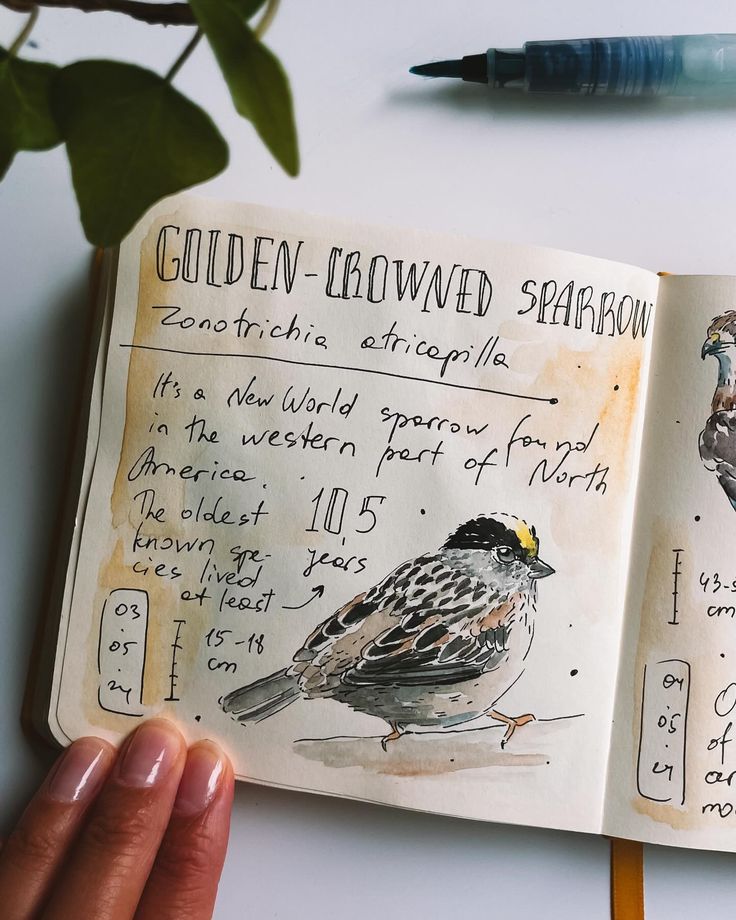 GOLDEN-CROWNED SPARROW
Zonotrichia atricapilla
It's a New World sparrow found
in the western part of North
America.
The oldest
known spe-
cies lived
at least
10,5
years
03
05
24
15-18
cm
43-5
cm
04
05
24
O
of
ar
mo